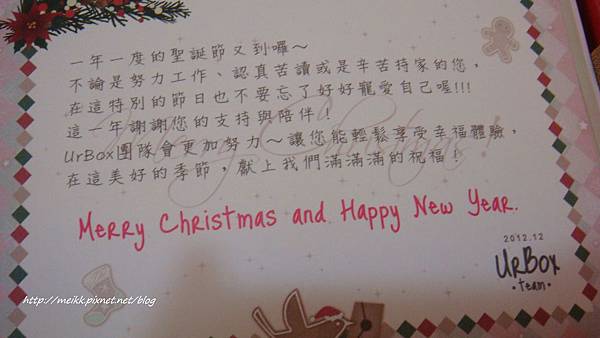 一年一度的聖誕節又到囉～
不論是努力工作、認真苦讀或是辛苦持家的您，
在這特別的節日也不要忘了好好寵愛自己喔!!!
這一年謝謝您的支持與陪伴！
UrBox團隊會更加努力～讓您能輕鬆享受幸福體驗，
在這美好的季節，獻上我們滿滿滿的祝福！
Merry Christmas!
Merry Christmas and Happy New Year.
2012.12
UrBox
·team·
http://meikk.pixnet.net/blog